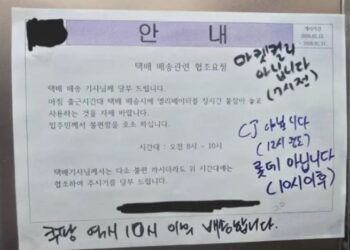 안 내
게시기간
택배 배송관련 협조요청
택배 배송 기사님께 당부 드립니다.
아침 출근시간대 택배 배송시에 엘리베이터를 장시간 붙잡아 놓고
사용하는 것을 자제 바랍니다.
입주민께서 불편함을 호소 하십니다.
시간대 : 오전 8시 ~ 10시
택배기사님께서는 다소 불편 하시더라도 위 시간대에는
협조하여 주시기를 당부 드립니다.
마켓컬리
아닙니다
(7시전)
CJ 아닐니다
(12시 완료)
롯데 아닙니다
(10시이후)
쿠팡 역시 10시 이외 배송합니다.